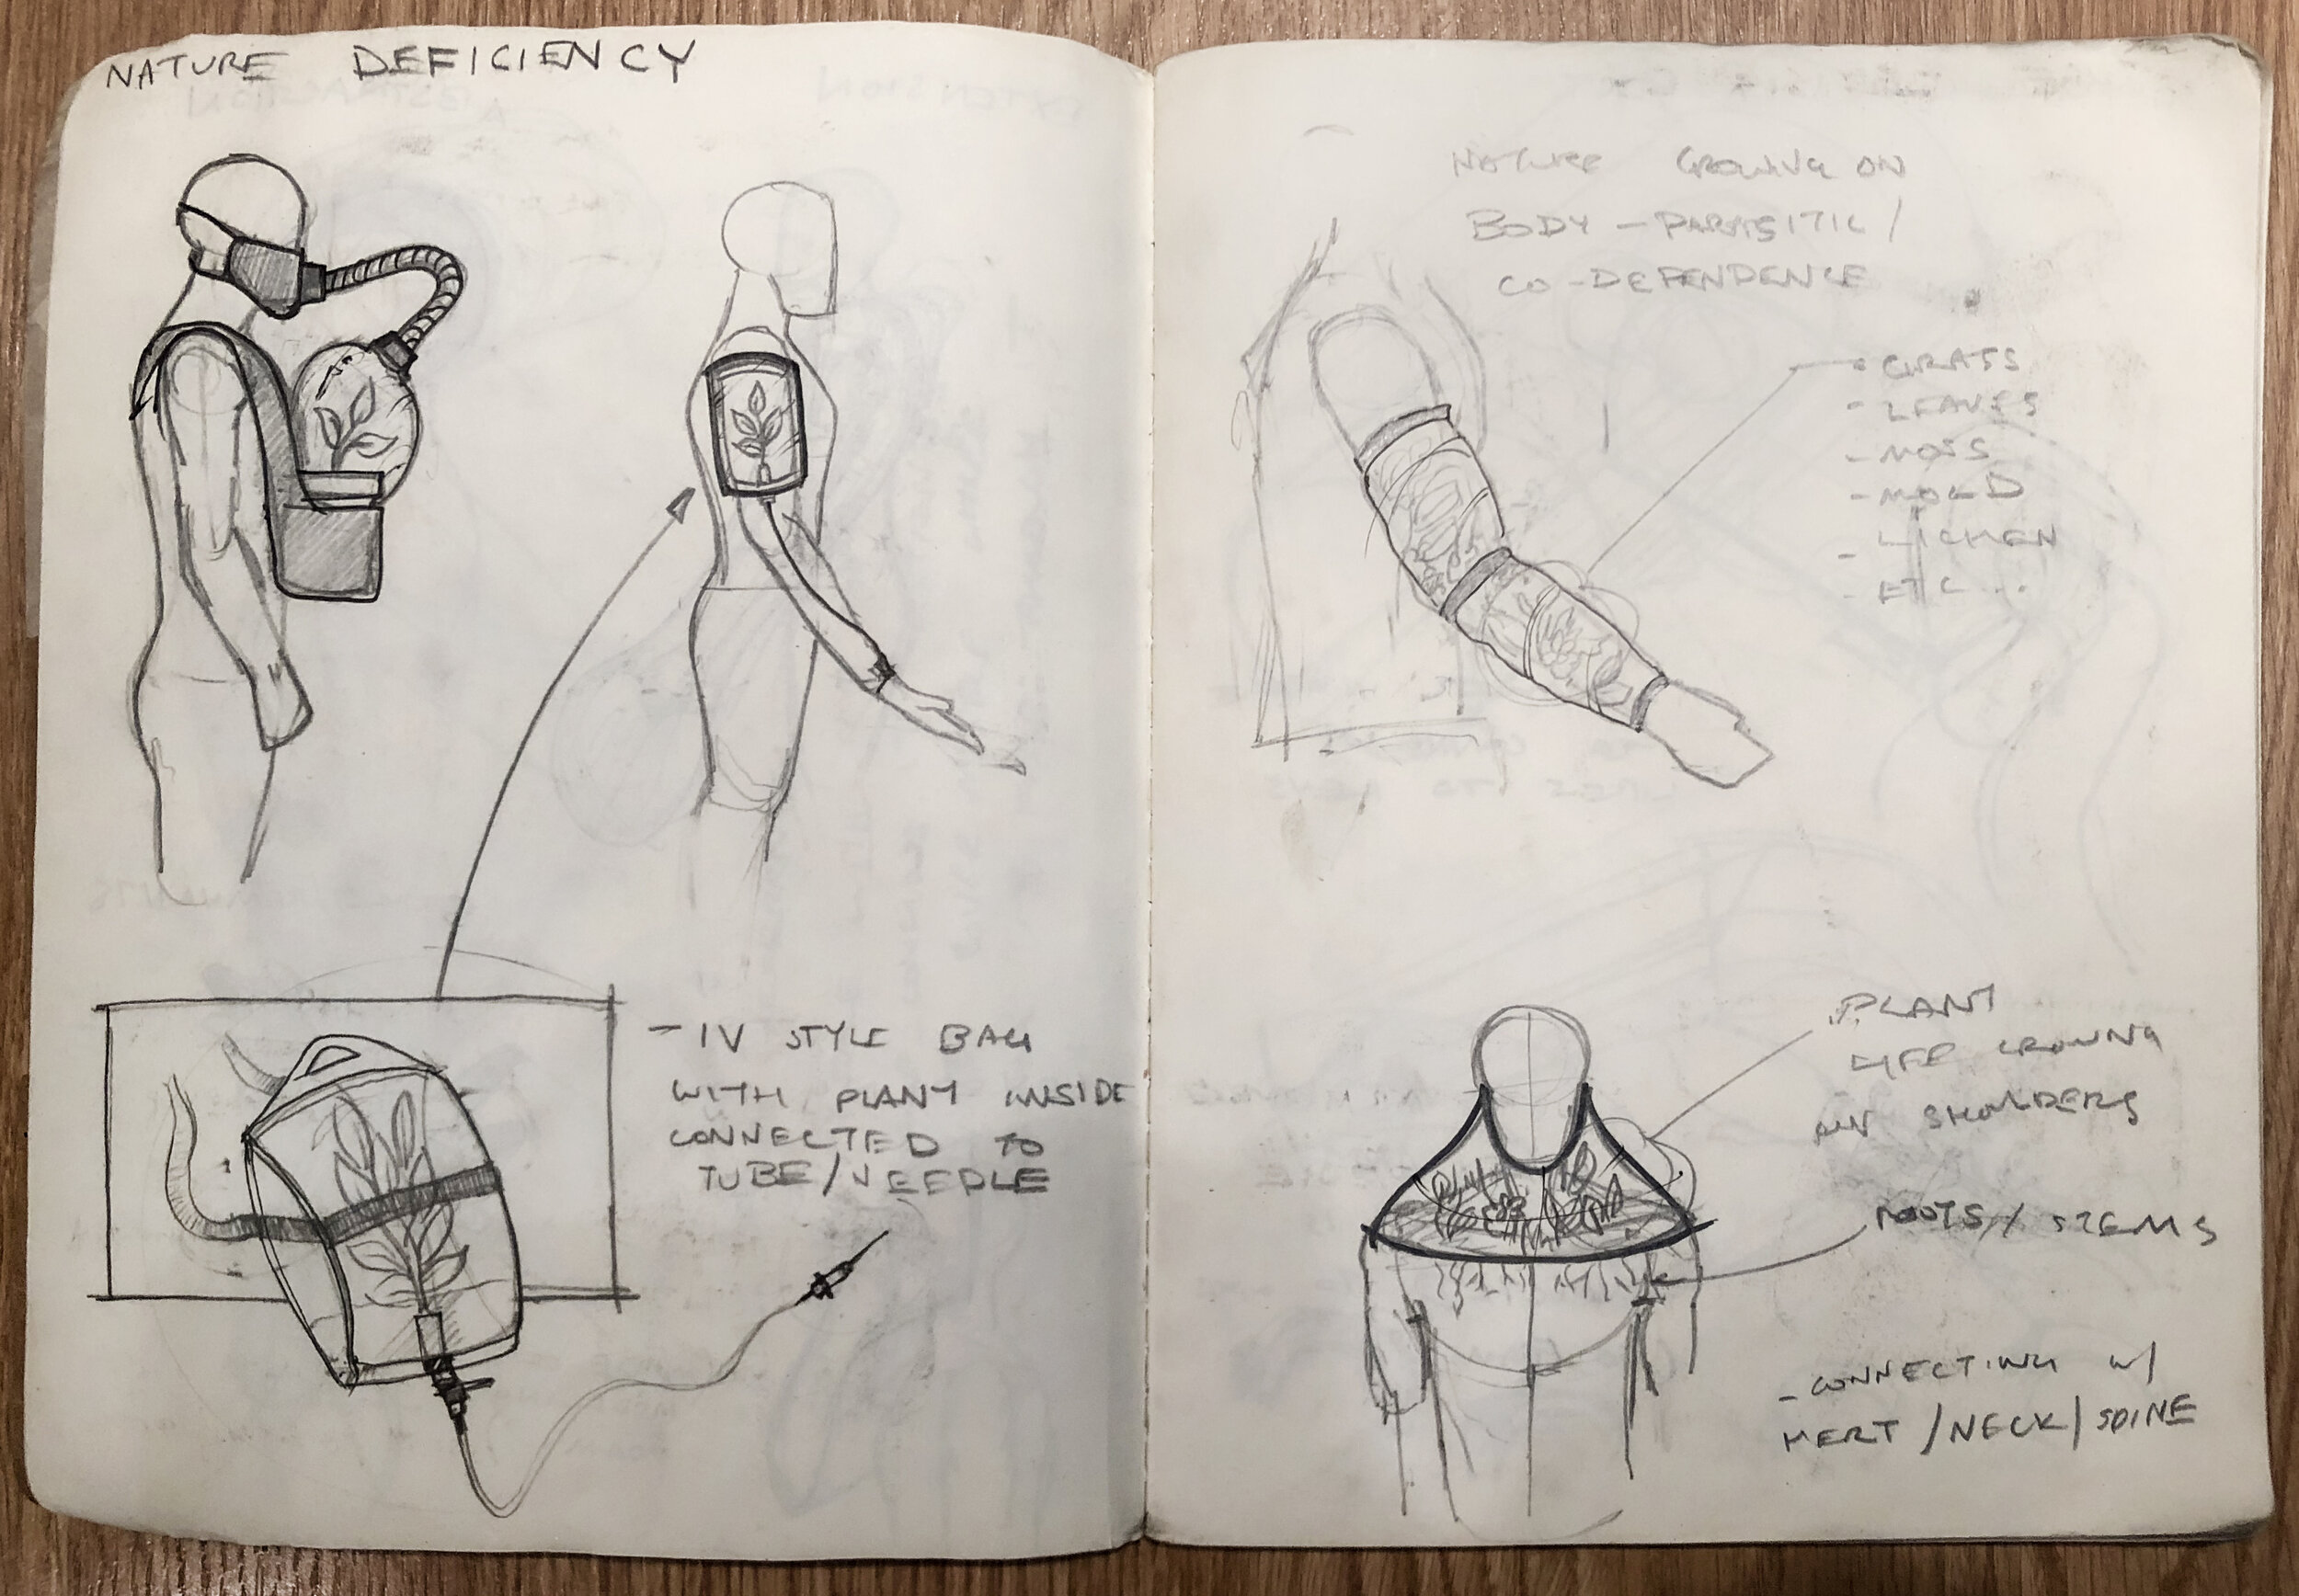 NATURE DEFICIENCY
- IV STYLE BAG
WITH PLANT INSIDE
CONNECTED TO
TUBE/NEEDLE
NATURE GROWING ON
BODY - PARASITIC /
CO-DEPENDENCE
- GRASS
- LEAVES
- MOSS
- MOLD
- LICHEN
- ETC...
PLANT
LIFE GROWING
ON SHOULDERS
ROOTS / STEMS
- CONNECTING W/
HERT / NECK / SPINE